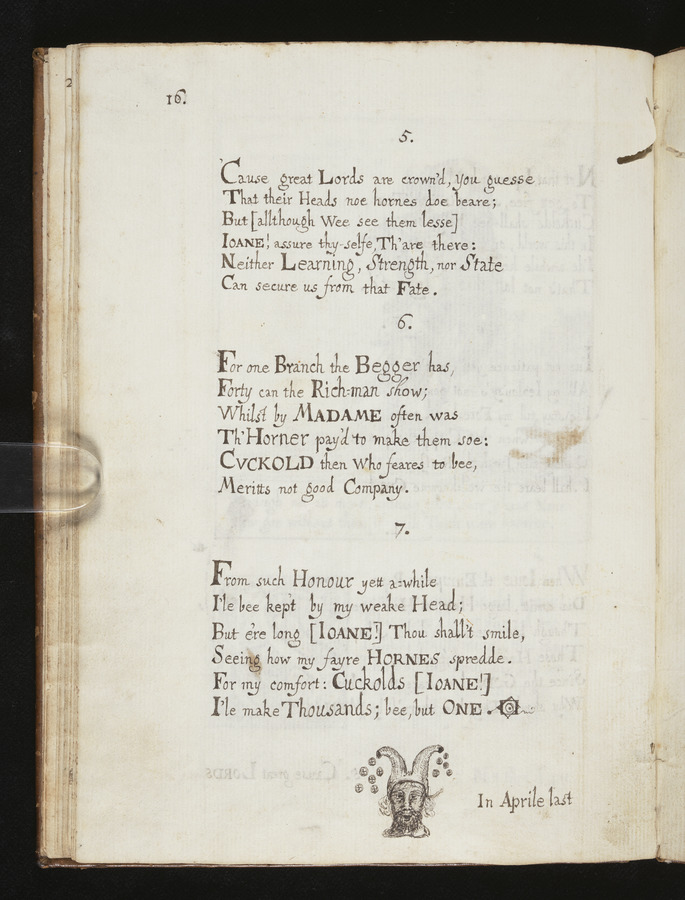 2
16.
5.
'Cause great Lords are crown'd, you guesse
That their Heads noe hornes doe beare;
But [allthough Wee see them lesse]
IOANE! assure thy-selfe, Th'are there:
Neither Learning, Strength, nor State
Can secure us from that Fate.
6.
For one Branch the Begger has,
Forty can the Rich=man show;
Whilst by MADAME often was
Th'Horner pay'd to make them soe:
CVCKOLD then Who feares to bee,
Meritts not good Company.
7.
From such Honour yett a=while
I'le bee kept by my weake Head;
But e're long [IOANE!] Thou shall't smile,
Seeing how my fayre HORNES spredde.
For my comfort: Cuckolds [IOANE!]
I'le make Thousands; bee, but ONE.
In Aprile last